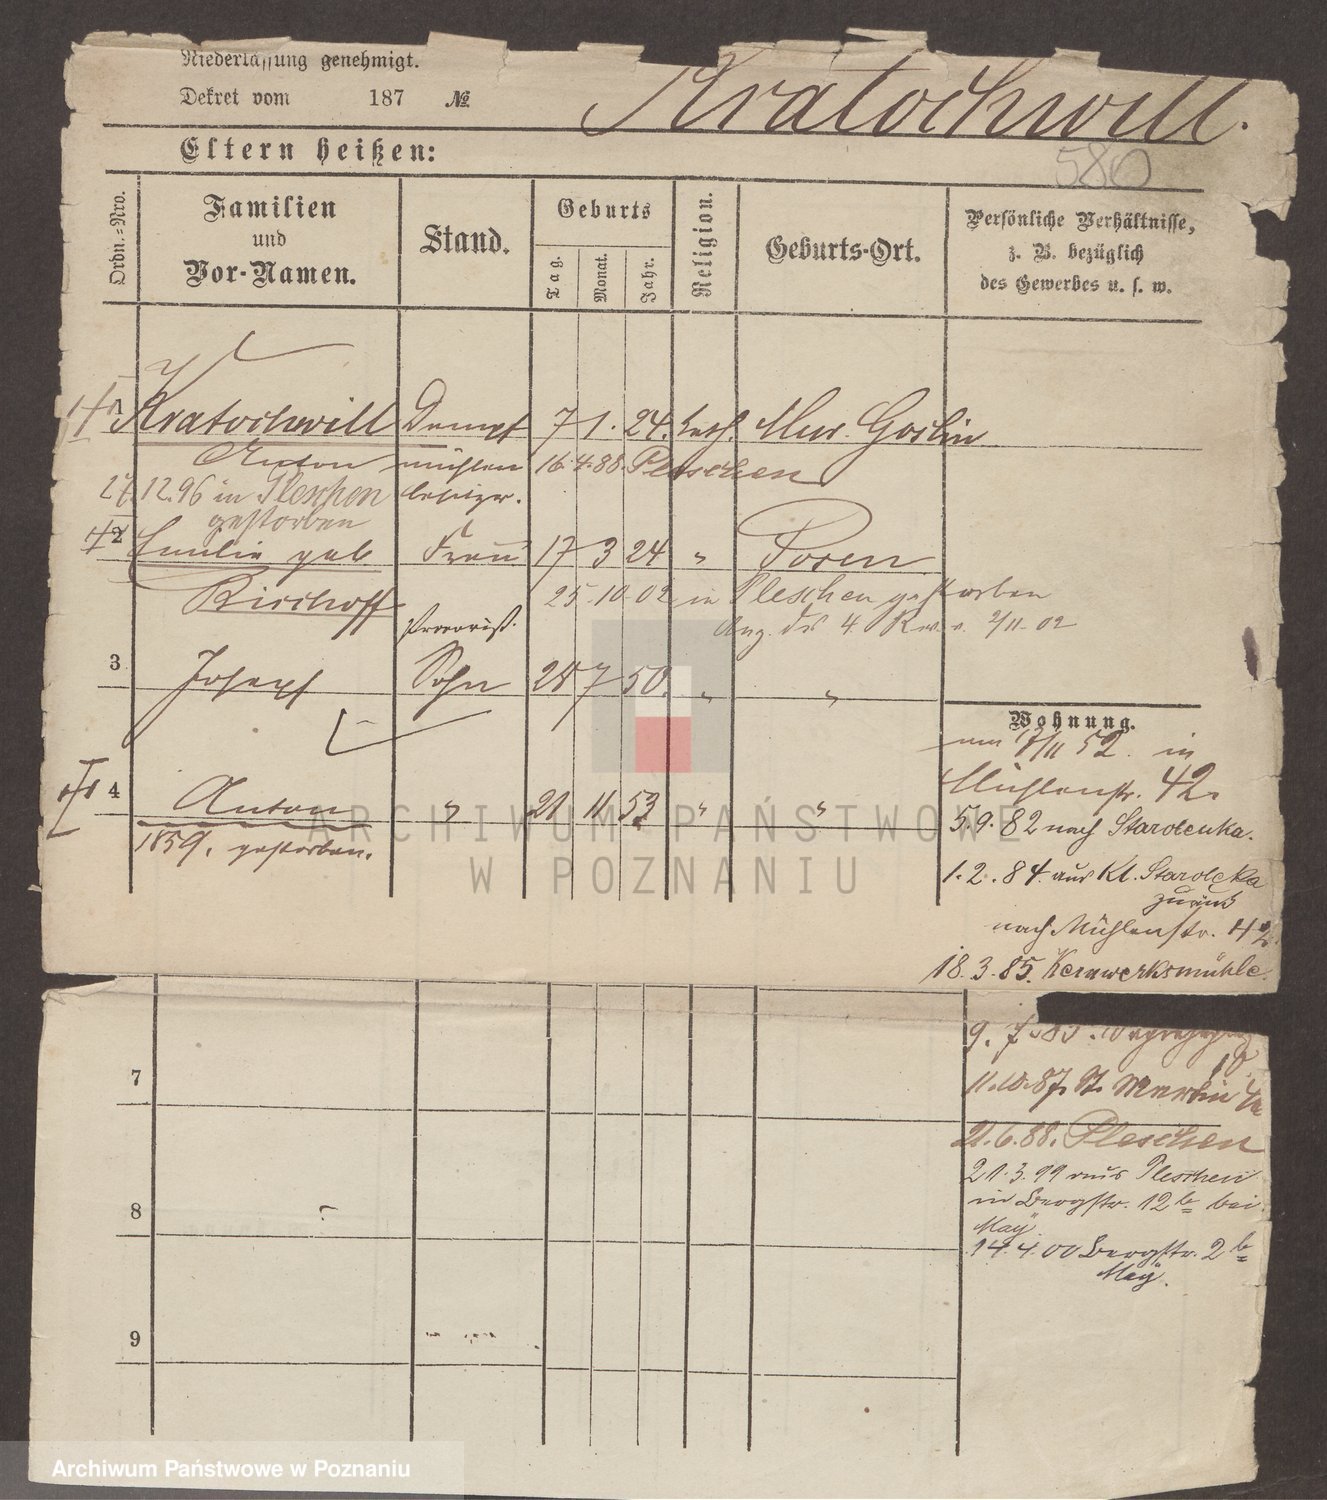 Niederlassung genehmigt.
Dekret vom 187 №
Kratochwill.
580
Eltern heißen:
Ordn.-Nro.
Familien
und
Vor-Namen.
Stand.
Geburts
Tag.
Monat.
Jahr.
Religion.
Geburts-Ort.
Persönliche Verhältnisse,
z. B. bezüglich
des Gewerbes u. s. w.
1 Kratochwill Dampf 7 1. 24. kath. Mur. Goslin
Anton mühlen 16.4.88. Pleschen
27.12.96 in Pleschen besitzer.
gestorben
2 Emilie geb. Frau 17 3 24 " Posen
Kirchhoff 25.10.02 in Pleschen gestorben
Anz. des 4. Rev. v. 2/11.02
3 Joseph Sohn 28 7 50. " "
Wohnung.
4 Anton " 21 11 53 " "
1859. gestorben.
52. in
Mühlenstr. 42.
5.9.82 nach Starolenka.
1.2.84. aus Kl. Staroleka
zurück
nach Mühlenstr. 42
18.3.85. Kernwerksmühle.
9.7.85.
11.10.87. St. Martin
21.6.88. Pleschen
21.3.99 aus Pleschen
in Bergstr. 12b bei
May
14.4.00 Bergstr. 2b
May.
7
8
9
ARCHIWUM PAŃSTWOWE
W POZNANIU
Archiwum Państwowe w Poznaniu